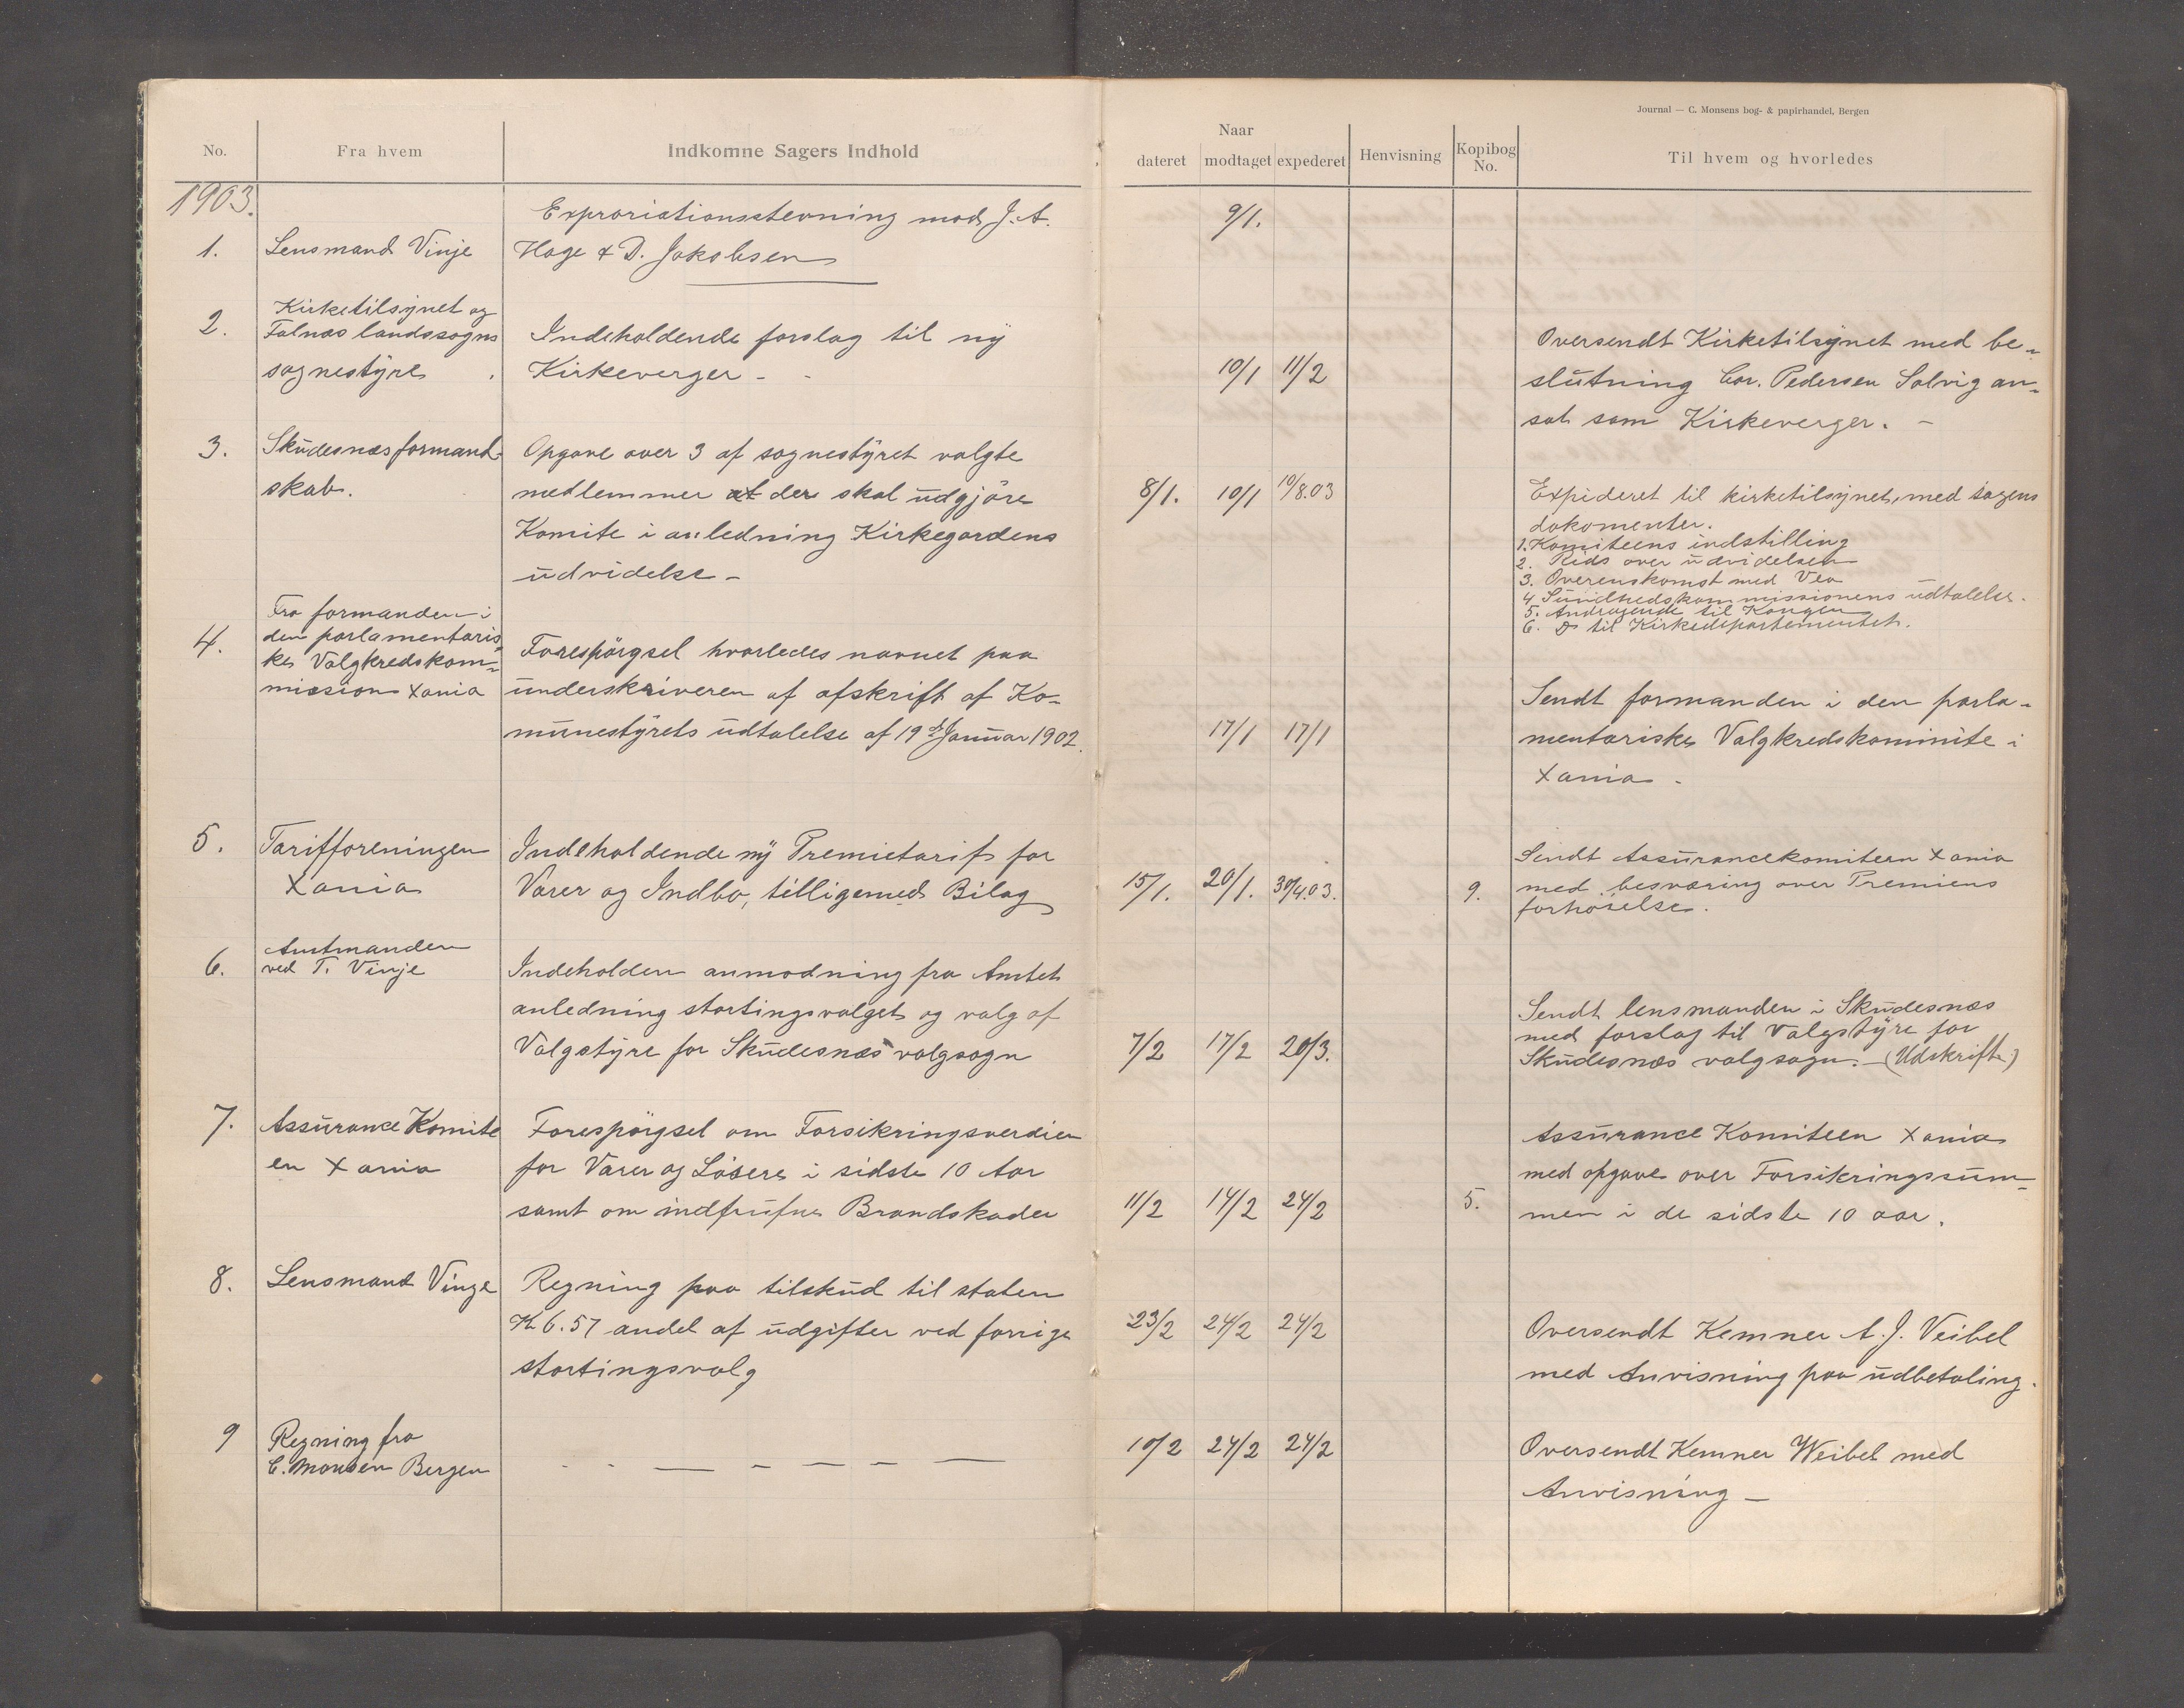 Journal — C. Monsens bog- & papirhandel, Bergen
No.
Fra hvem
Indkomne Sagers Indhold
Naar
dateret
modtaget
expederet
Henvisning
Kopibog
No.
Til hvem og hvorledes
1903.
1.
Lensmand Vinje
Exproriationsstevning mod J. A.
Hage & D. Jakobsen
9/1.
2.
Kirketilsynet og
Falnæs landssogns
sognestyre
Indeholdende forslag til ny
Kirkeverger -
10/1
11/2
Oversendt Kirketilsynet med be-
slutning Cor. Pedersen Solvig an-
sat som Kirkeverger. -
3.
Skudesnæs formand-
skab.
Opgave over 3 af sognestyret valgte
medlemmer at der skal udgjöre
Komite i anledning Kirkegardens
udvidelse -
8/1.
10/1
10/8.03
Expideret til kirketilsynet, med sagens
dokomenter.
1. Komiteens indstilling
2. Rids over udvidelsen
3. Overenskomst med Vea
4 Sundhedskommissionens udtalelse.
5. Andragende til Kongen
6. Do til Kirkedepartementet.
4.
Fra formanden i
den parlamentaris-
ke Valgkredskom-
mission Xania
Forespörgsel hvorledes navnet paa
underskriveren af afskrift af Ko-
munestyrets udtalelse af 19de Januar 1902.
17/1
17/1
Sendt formanden i den parla-
mentariske Valgkredskominite i
Xania -
5.
Tarifforeningen
Xania
Indeholdende ny Premietarif for
Varer og Indbo, tilligemed Bilag
15/1.
20/1.
30/4.03.
9.
Sendt Assurancekomiteen Xania
med besværing over Premiens
forhöielse.
6.
Amtmanden
ved T. Vinje
Indeholden anmodning fra Amtet
anledning stortingsvalget og valg af
Valgstyre for Skudesnæs valgsogn
7/2
17/2
20/3.
Sendt lensmanden i Skudesnæs
med forslag til Valgstyre for
Skudesnæs valgsogn. - (Udskrift)
7.
Assurance Komite
en Xania
Forespörgsel om Forsikringsverdien
for Varer og Lösere i sidste 10 Aar
samt om indtrufne Brandskader
11/2
14/2
24/2
5.
Assurance Komiteen Xania
med opgave over Forsikringssum-
men i de sidste 10 aar.
8.
Lensmand Vinje
Regning paa tilskud til staten
Kr 6.57 andel af udgifter ved forrige
stortingsvalg
23/2
24/2
24/2
Oversendt Kemner A. J. Veibel
med Anvisning paa udbetaling.
9
Regning fra
C. Monsen Bergen
- - — - — - —
10/2
24/2
24/2
Oversendt Kemner Weibel med
Anvisning -